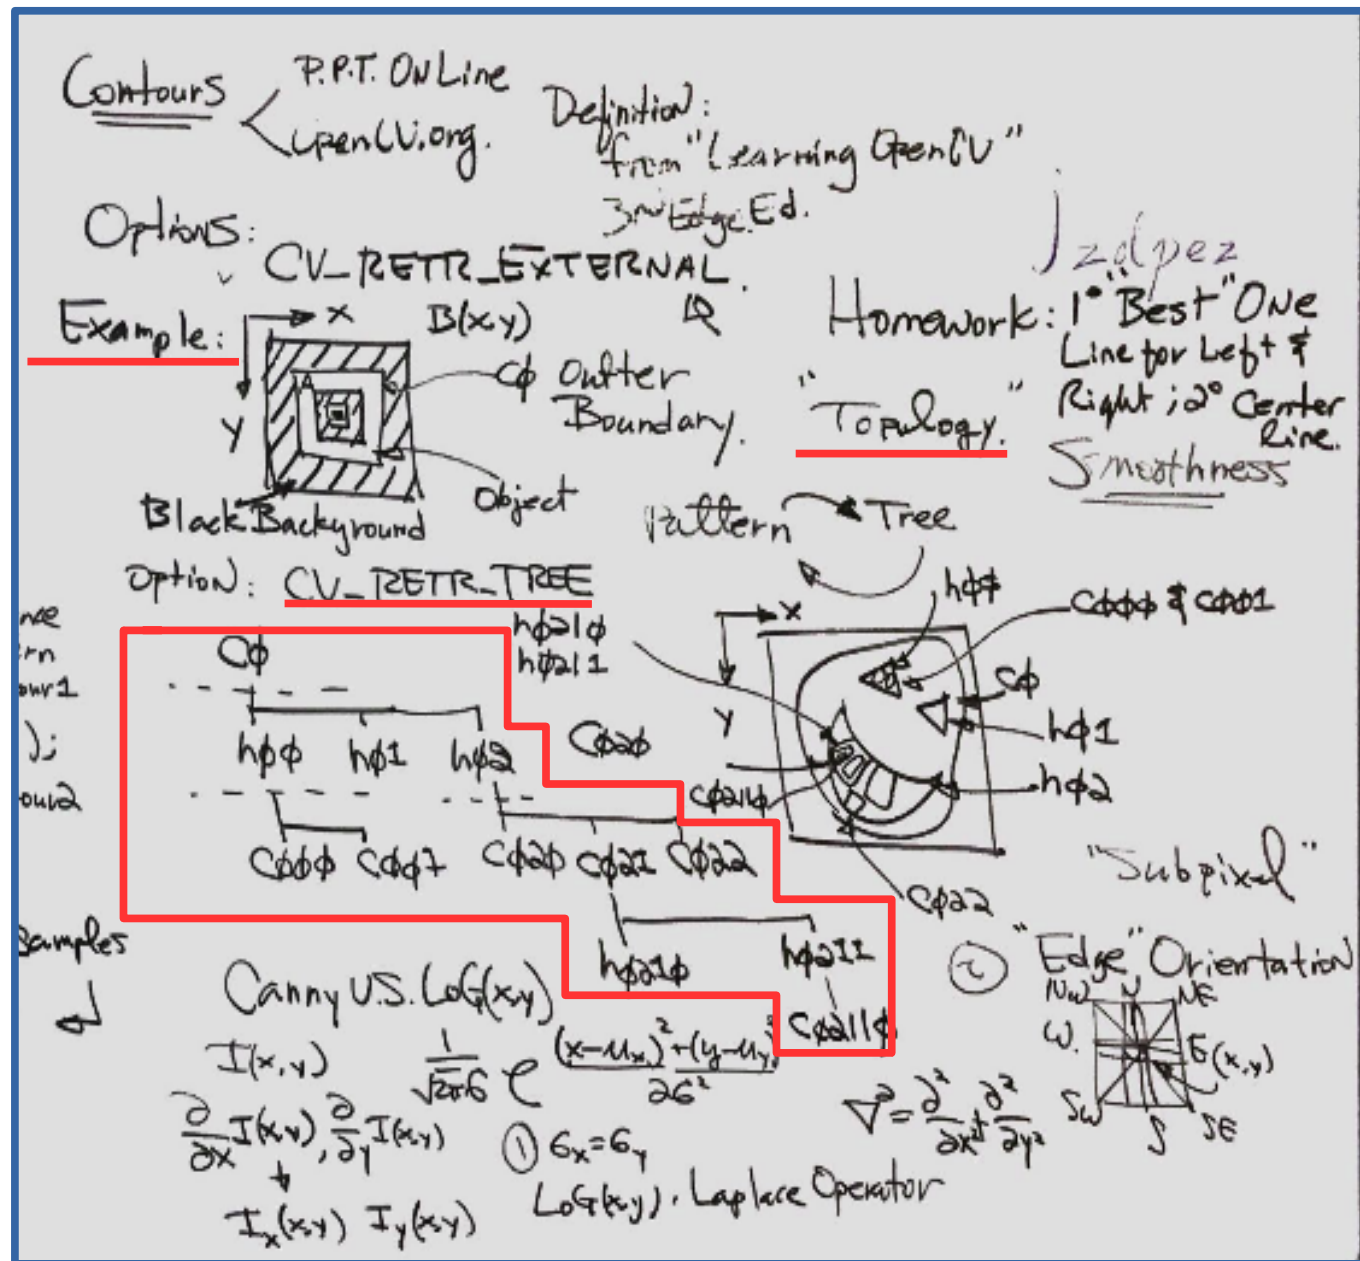 Contours
P.P.T. ONLine
OpenCV.org.
Definition:
from "Learning OpenCV"
3rd Edge. Ed.
Options:
CV_RETR_EXTERNAL.
Example:
X
B(x,y)
Y
Cϕ Outter
Boundary.
Object
Black Background
Homework: 1° "Best" ONe
Line for Left &
Right ; 2° Center
Line.
Smoothness
"Topology."
Pattern Tree
Option: CV_RETR_TREE
hϕ21ϕ
hϕ211
Cϕ
hϕϕ hϕ1 hϕ2
Cϕ2ϕ
Cϕϕϕ Cϕϕ1 Cϕ2ϕ Cϕ21 Cϕ22
hϕ21ϕ hϕ211
Cϕ211ϕ
X
Y
hϕϕ
Cϕϕϕ & Cϕϕ1
Cϕ
hϕ1
hϕ2
Cϕ22
);
samples
"Subpixel"
② "Edge" Orientation
NW N NE
W. E (x,y)
SW S SE
Canny V.S. LoG(x,y)
I(x,y)
1/√2π6 e (x-ux)²+(y-uy)²/26²
∂/∂x I(x,y), ∂/∂y I(x,y)
Ix(x,y) Iy(x,y)
① 6x=6y
LoG(x,y). Laplace Operator
∇²= ∂²/∂x²+∂²/∂y²